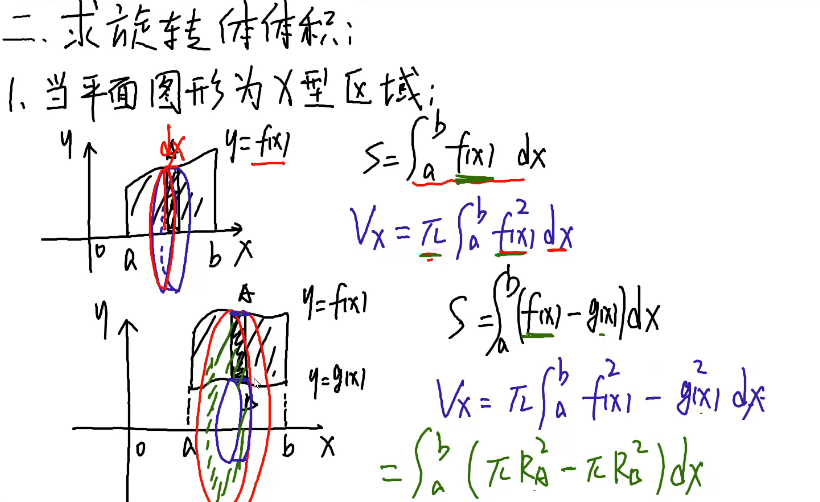 二.求旋转体体积;
1.当平面图形为X型区域;
y
dx
y=f(x)
0 a b x
S=∫_a^b f(x) dx
V_x=π∫_a^b f²(x)dx
y
A
y=f(x)
y=g(x)
0 a b x
S=∫_a^b (f(x)-g(x))dx
V_x=π∫_a^b f²(x)-g²(x) dx
=∫_a^b (πR_A²-πR_B²)dx